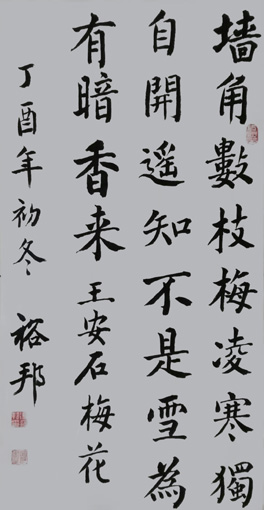 墙角數枝梅凌寒獨
自開遥知不是雪為
有暗香来 王安石梅花
丁酉年初冬 裕邦